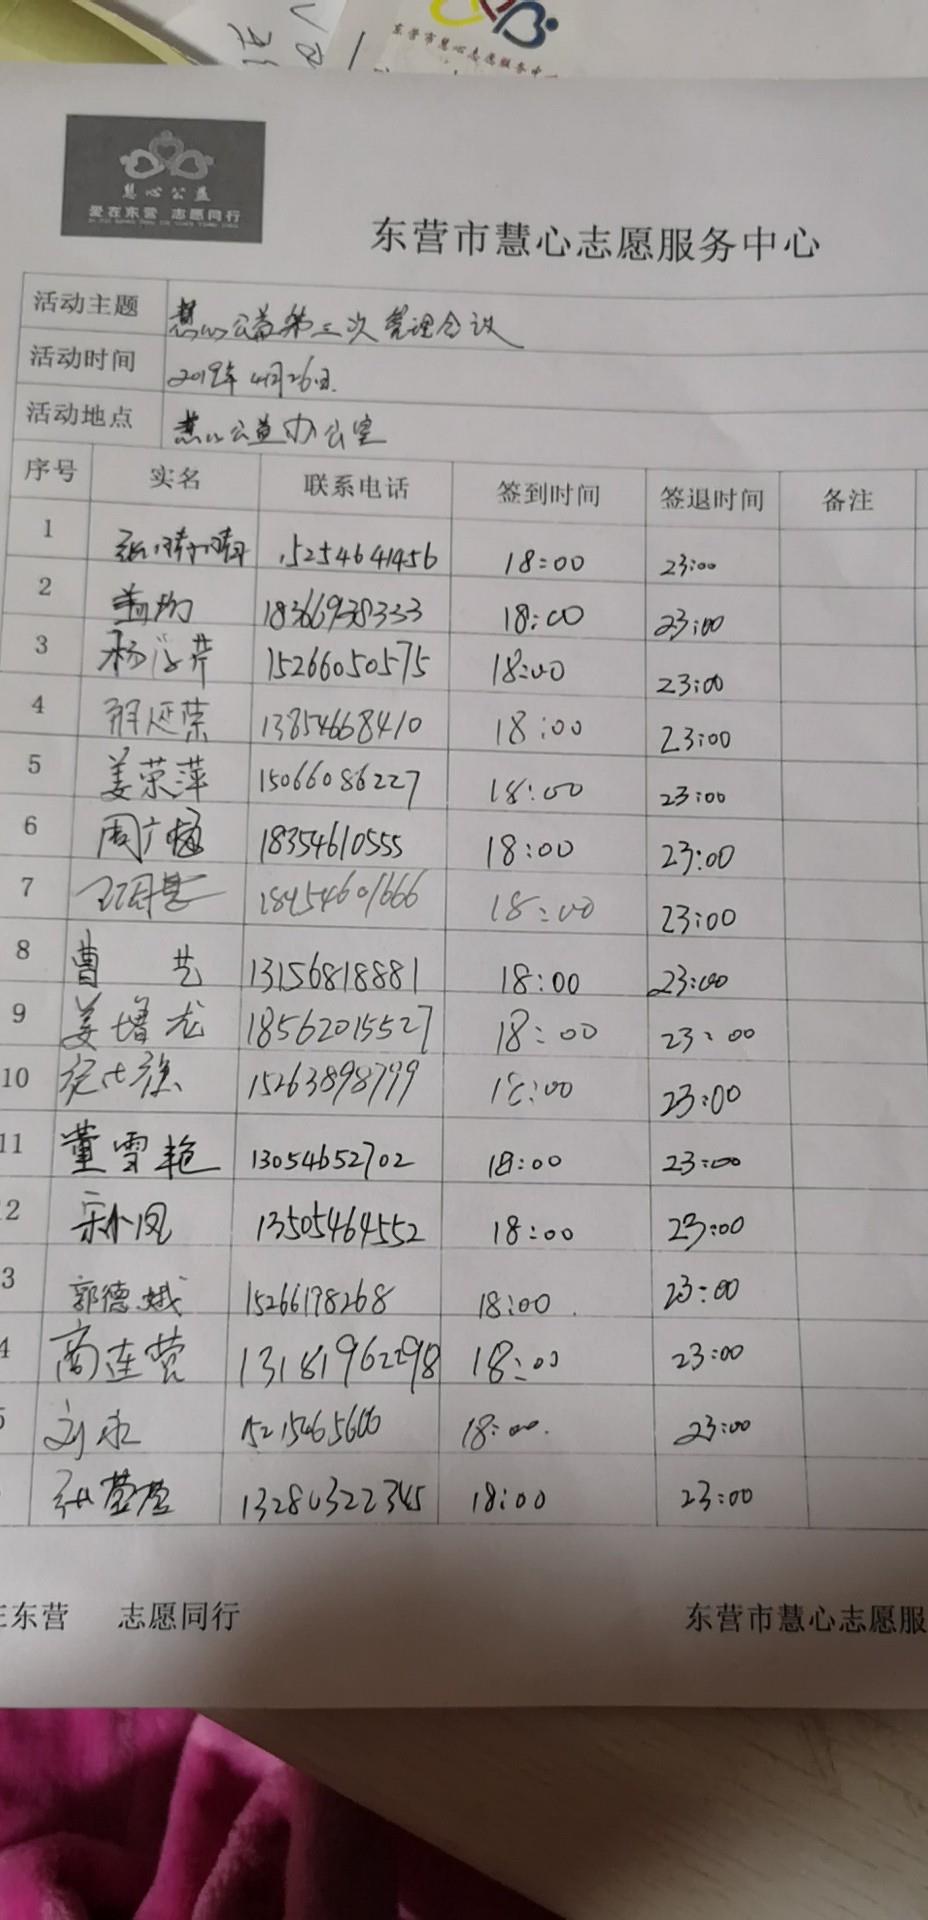 东营市慧心志愿服务中
慧心公益
爱在东营 志愿同行
东营市慧心志愿服务中心
活动主题 慧心公益第三次管理会议
活动时间 2019年4月26日.
活动地点 慧心公益办公室
序号 实名 联系电话 签到时间 签退时间 备注
1 张晴晴 15254641456 18:00 23:00
2 18366938333 18:00 23:00
3 杨学芹 15266050575 18:00 23:00
4 13854668410 18:00 23:00
5 姜荣萍 15066086227 18:00 23:00
6 周广 18354610555 18:00 23:00
7 18454601666 18:00 23:00
8 曹艺 13156818881 18:00 23:00
9 姜增龙 18562015527 18:00 23:00
10 15263898799 18:00 23:00
11 董雪艳 13054652702 18:00 23:00
2 13505464552 18:00 23:00
3 郭德娥 15266198268 18:00 23:00
4 商连营 13181962298 18:00 23:00
5 刘永 18:00 23:00
张莹莹 13280322345 18:00 23:00
在东营 志愿同行 东营市慧心志愿服